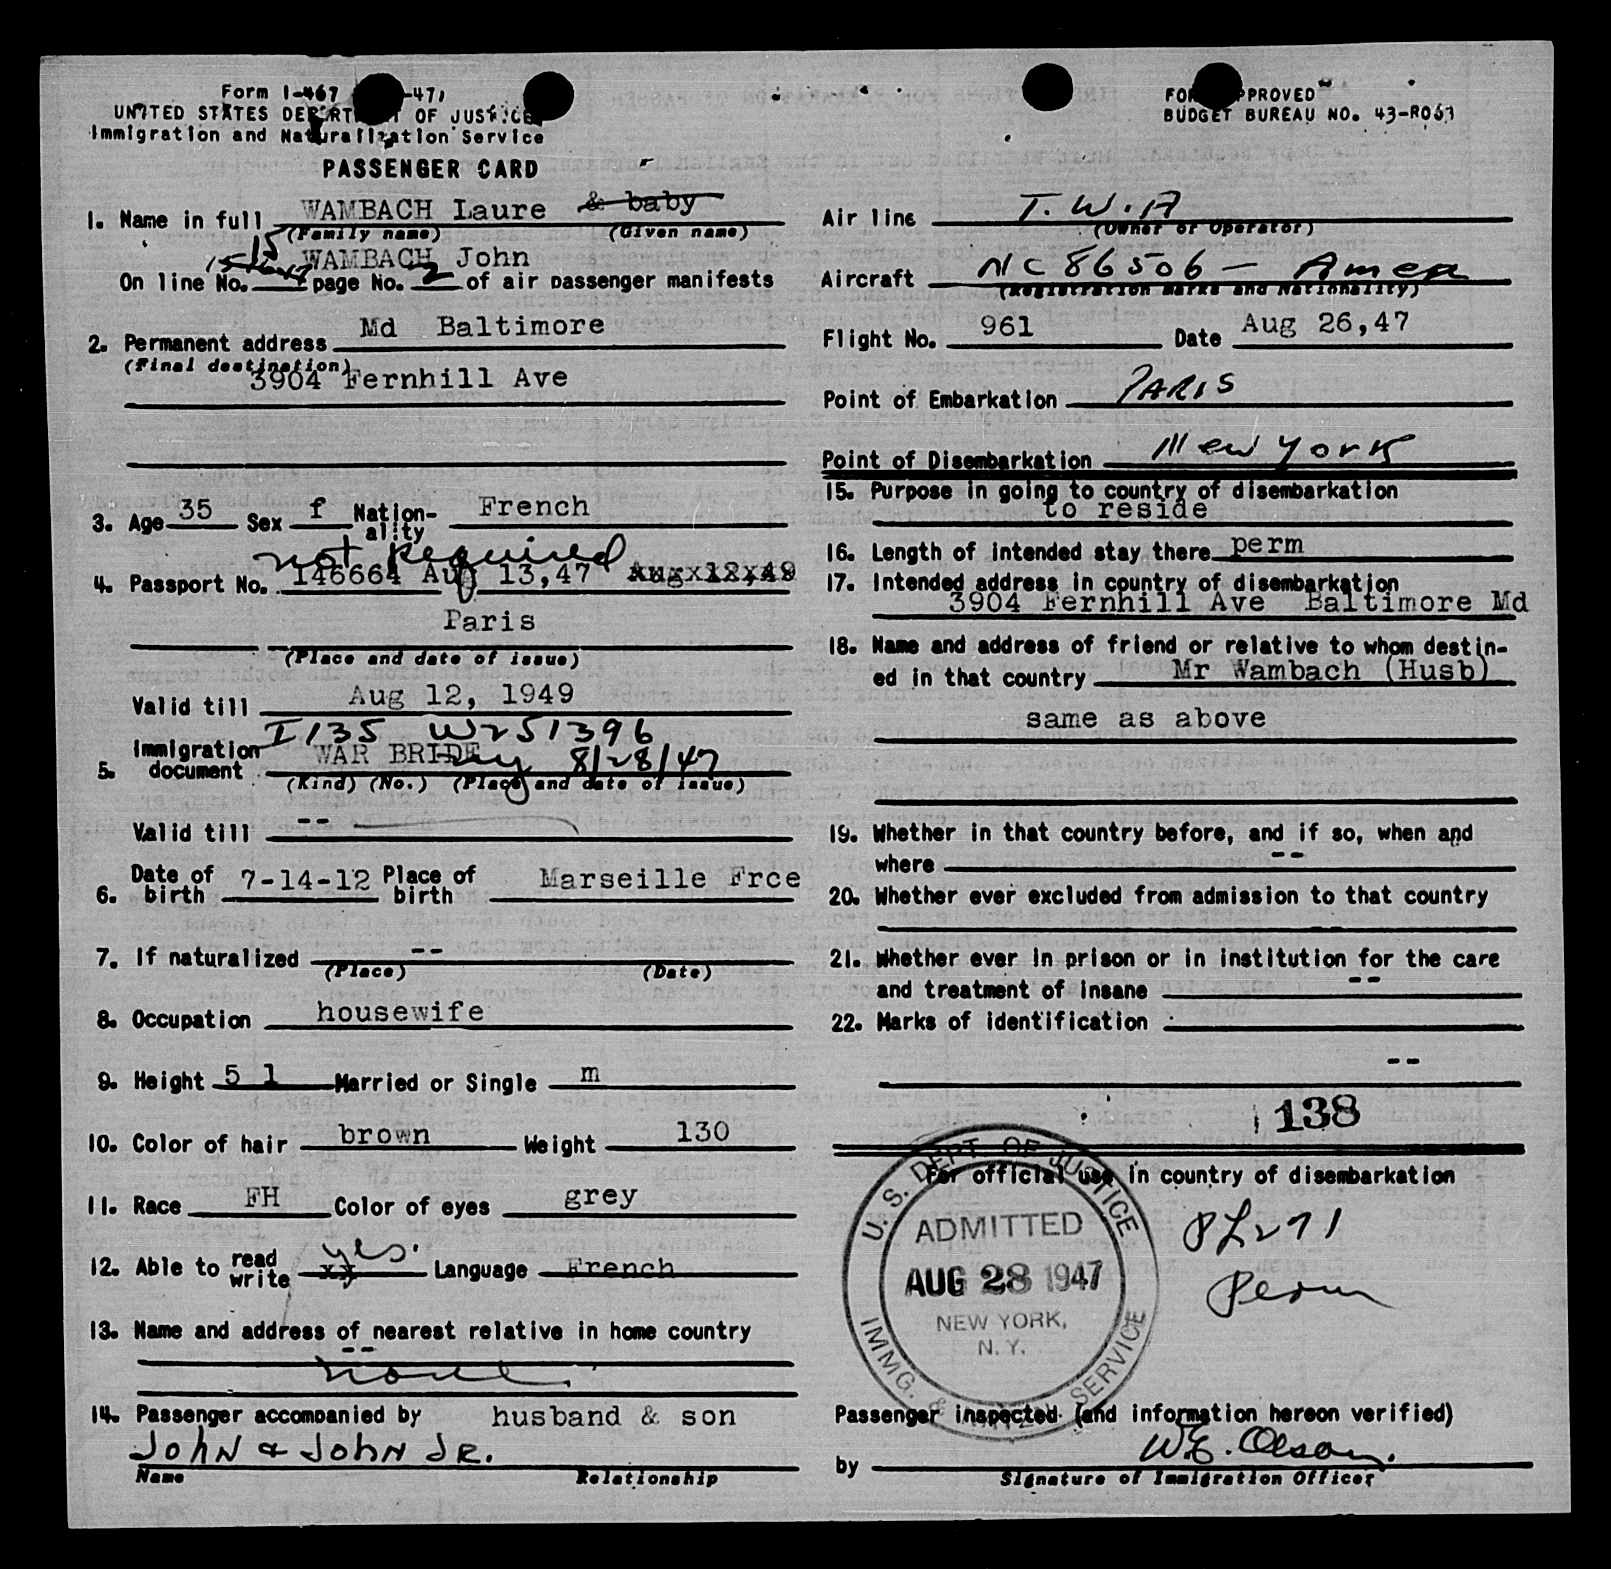 Form I-467 -47)
UNITED STATES DEPARTMENT OF JUSTICE
Immigration and Naturalization Service
PASSENGER CARD
FORM APPROVED
BUDGET BUREAU NO. 43-R063
1. Name in full WAMBACH Laure & baby
(Family name) (Given name)
WAMBACH John
On line No. 15 page No. 2 of air passenger manifests
2. Permanent address Md Baltimore
(Final destination)
3904 Fernhill Ave
3. Age 35 Sex f Nation-ality French
not required
4. Passport No. 146664 Aug 13,47 Augx12,49
Paris
(Place and date of issue)
Valid till Aug 12, 1949
I135 W251396
5. Immigration document WAR BRIDE NY 8/28/47
(Kind) (No.) (Place and date of issue)
Valid till --
6. Date of birth 7-14-12 Place of birth Marseille Frce
7. If naturalized --
(Place) (Date)
8. Occupation housewife
9. Height 5 1 Married or Single m
10. Color of hair brown Weight 130
11. Race FH Color of eyes grey
12. Able to read write yes. xx Language French
13. Name and address of nearest relative in home country
--
none
14. Passenger accompanied by husband & son
JOHN & JOHN JR.
Name Relationship
Air line T.W.A
(Owner or Operator)
Aircraft NC 86506 - Amer
(Registration marks and Nationality)
Flight No. 961 Date Aug 26,47
Point of Embarkation PARIS
Point of Disembarkation New York
15. Purpose in going to country of disembarkation
to reside
16. Length of intended stay there perm
17. Intended address in country of disembarkation
3904 Fernhill Ave Baltimore Md
18. Name and address of friend or relative to whom destin-
ed in that country Mr Wambach (Husb)
same as above
19. Whether in that country before, and if so, when and
where --
20. Whether ever excluded from admission to that country
--
21. Whether ever in prison or in institution for the care
and treatment of insane --
22. Marks of identification
--
138
For official use in country of disembarkation
U. S. DEPT. OF JUSTICE
ADMITTED
AUG 28 1947
NEW YORK,
N. Y.
IMMG. & NATZ. SERVICE
PL271
Perm
Passenger inspected (and information hereon verified)
by W.E. Olson.
Signature of Immigration Officer